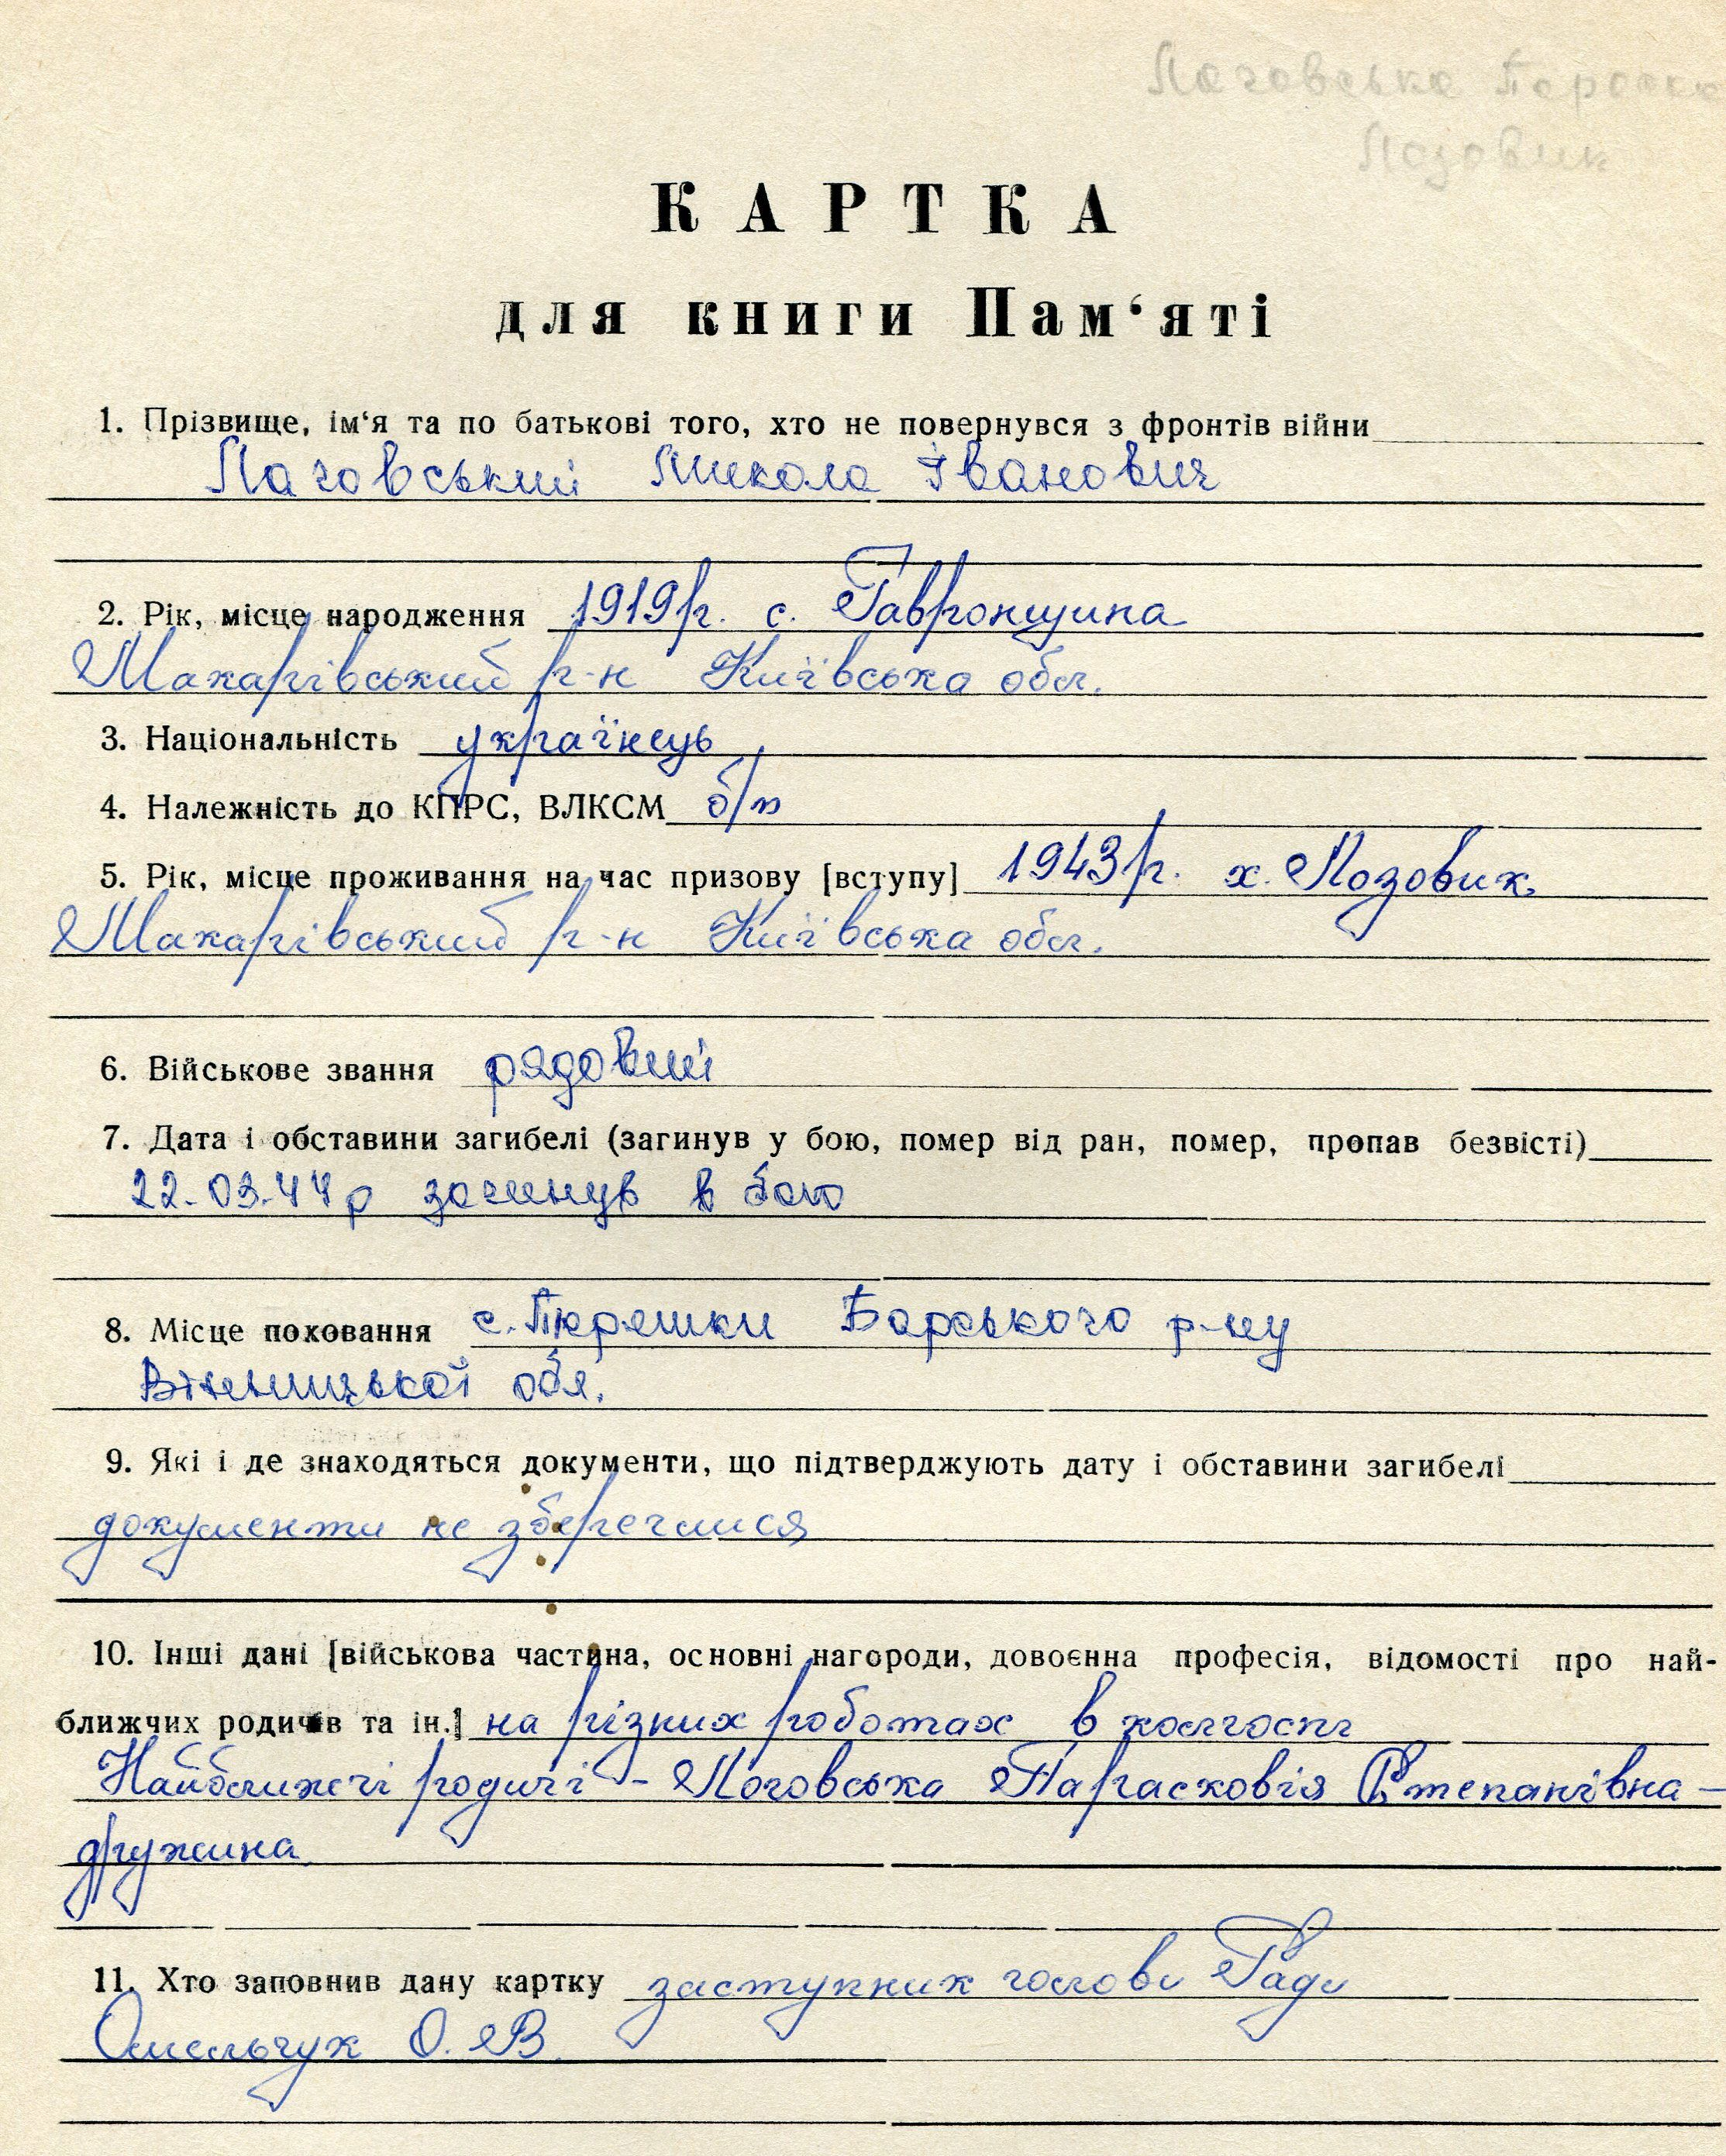 Лаговська Параска
Лозовик
КАРТКА
для книги Пам‘яті
1. Прізвище, ім‘я та по батькові того, хто не повернувся з фронтів війни
Лаговський Микола Іванович
2. Рік, місце народження 1919 р. с. Гавронщина
Макарівський р-н Київська обл.
3. Національність українець
4. Належність до КПРС, ВЛКСМ б/п
5. Рік, місце проживання на час призову [вступу] 1943 р. х. Лозовик
Макарівський р-н Київська обл.
6. Військове звання рядовий
7. Дата і обставини загибелі (загинув у бою, помер від ран, помер, пропав безвісті)
22.03.44 р загинув в бою
8. Місце поховання с. Барського р-ну
Вінницької обл.
9. Які і де знаходяться документи, що підтверджують дату і обставини загибелі
документи не збереглися
10. Інші дані [військова частина, основні нагороди, довоєнна професія, відомості про най-
ближчих родичів та ін.] на різних роботах в колгоспі
Найближчі родичі - Логовська Парасковія Степанівна -
дружина
11. Хто заповнив дану картку заступник голови Ради
Омельчук О. В.